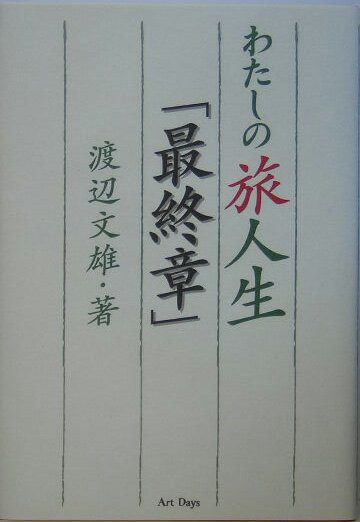 わたしの旅人生
「最終章」
渡辺文雄・著
Art Days